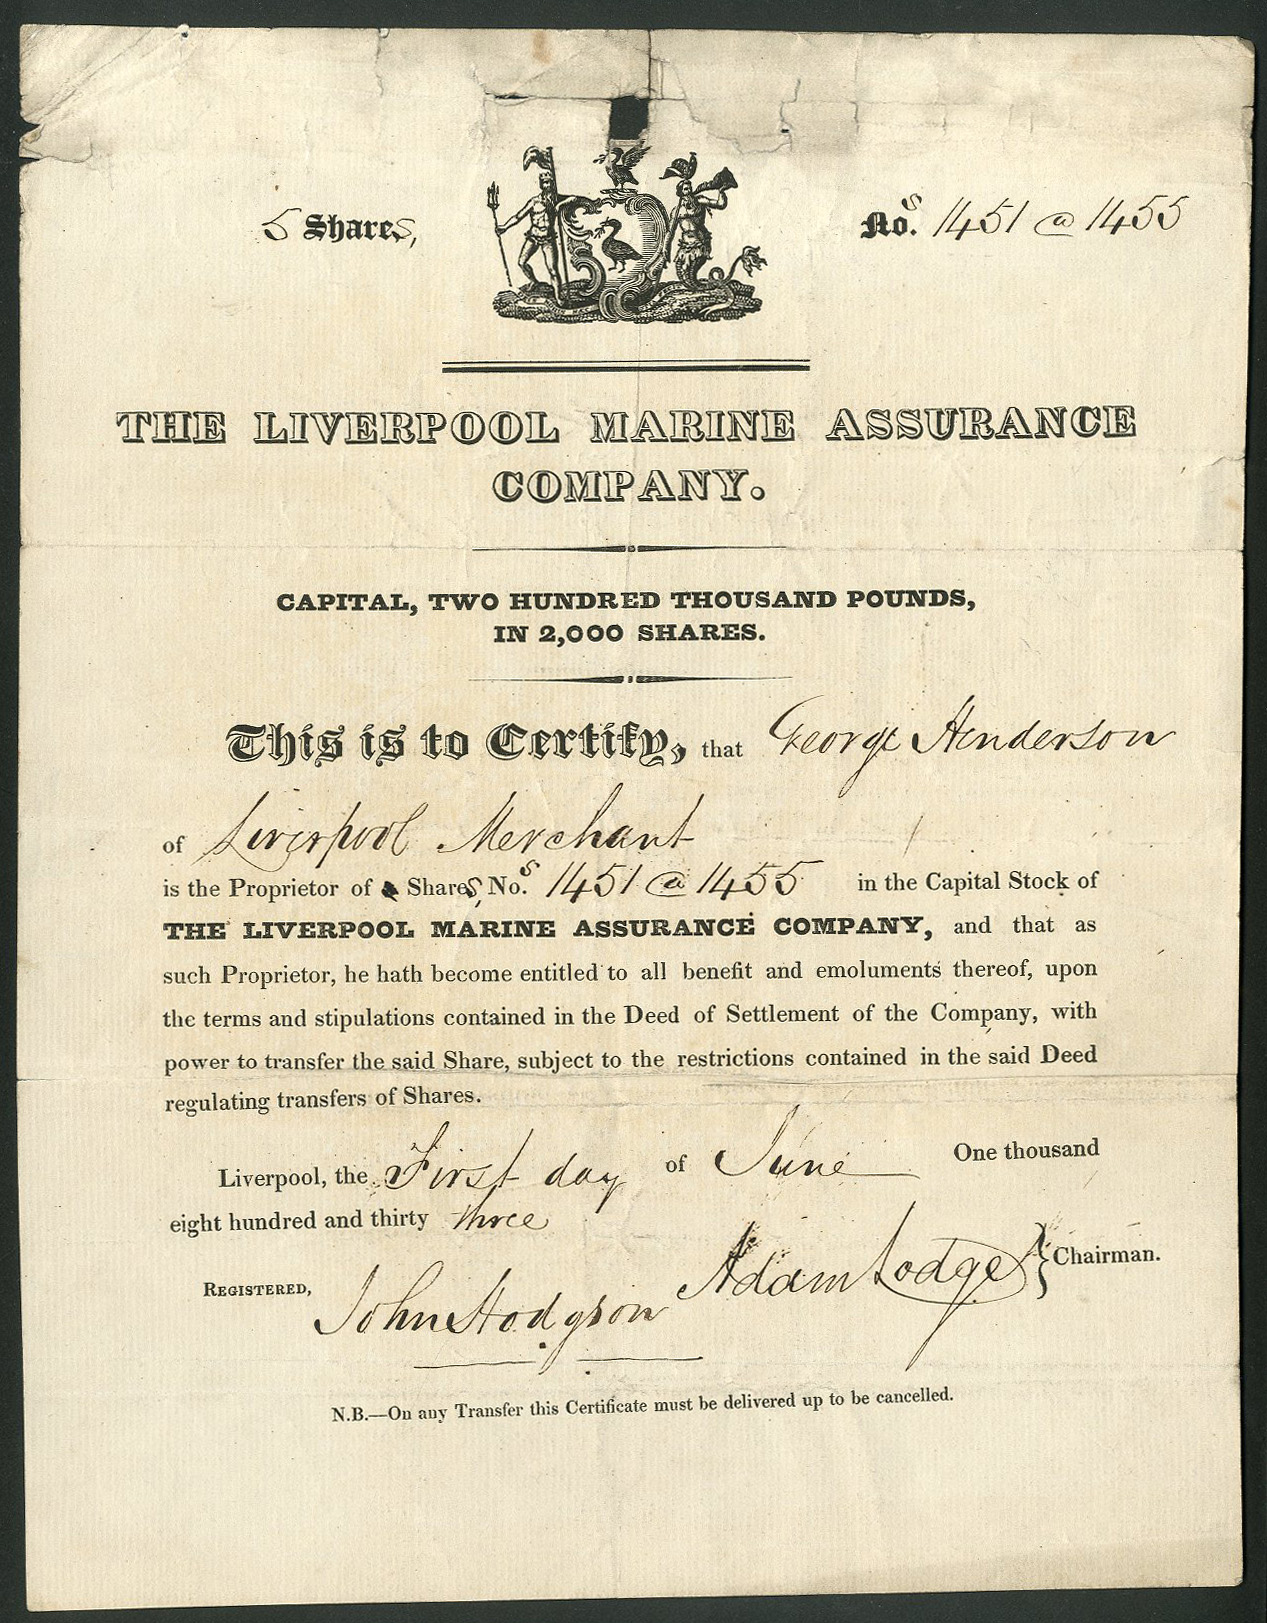 5 Shares, Nos. 1451 @ 1455
THE LIVERPOOL MARINE ASSURANCE
COMPANY.
CAPITAL, TWO HUNDRED THOUSAND POUNDS,
IN 2,000 SHARES.
This is to Certify, that George Henderson
of Liverpool Merchant
is the Proprietor of Shares, Nos. 1451 @ 1455 in the Capital Stock of
THE LIVERPOOL MARINE ASSURANCE COMPANY, and that as
such Proprietor, he hath become entitled to all benefit and emoluments thereof, upon
the terms and stipulations contained in the Deed of Settlement of the Company, with
power to transfer the said Share, subject to the restrictions contained in the said Deed
regulating transfers of Shares.
Liverpool, the First day of June One thousand
eight hundred and thirty three
Adam Lodge } Chairman.
REGISTERED, John Hodgson
N.B.—On any Transfer this Certificate must be delivered up to be cancelled.